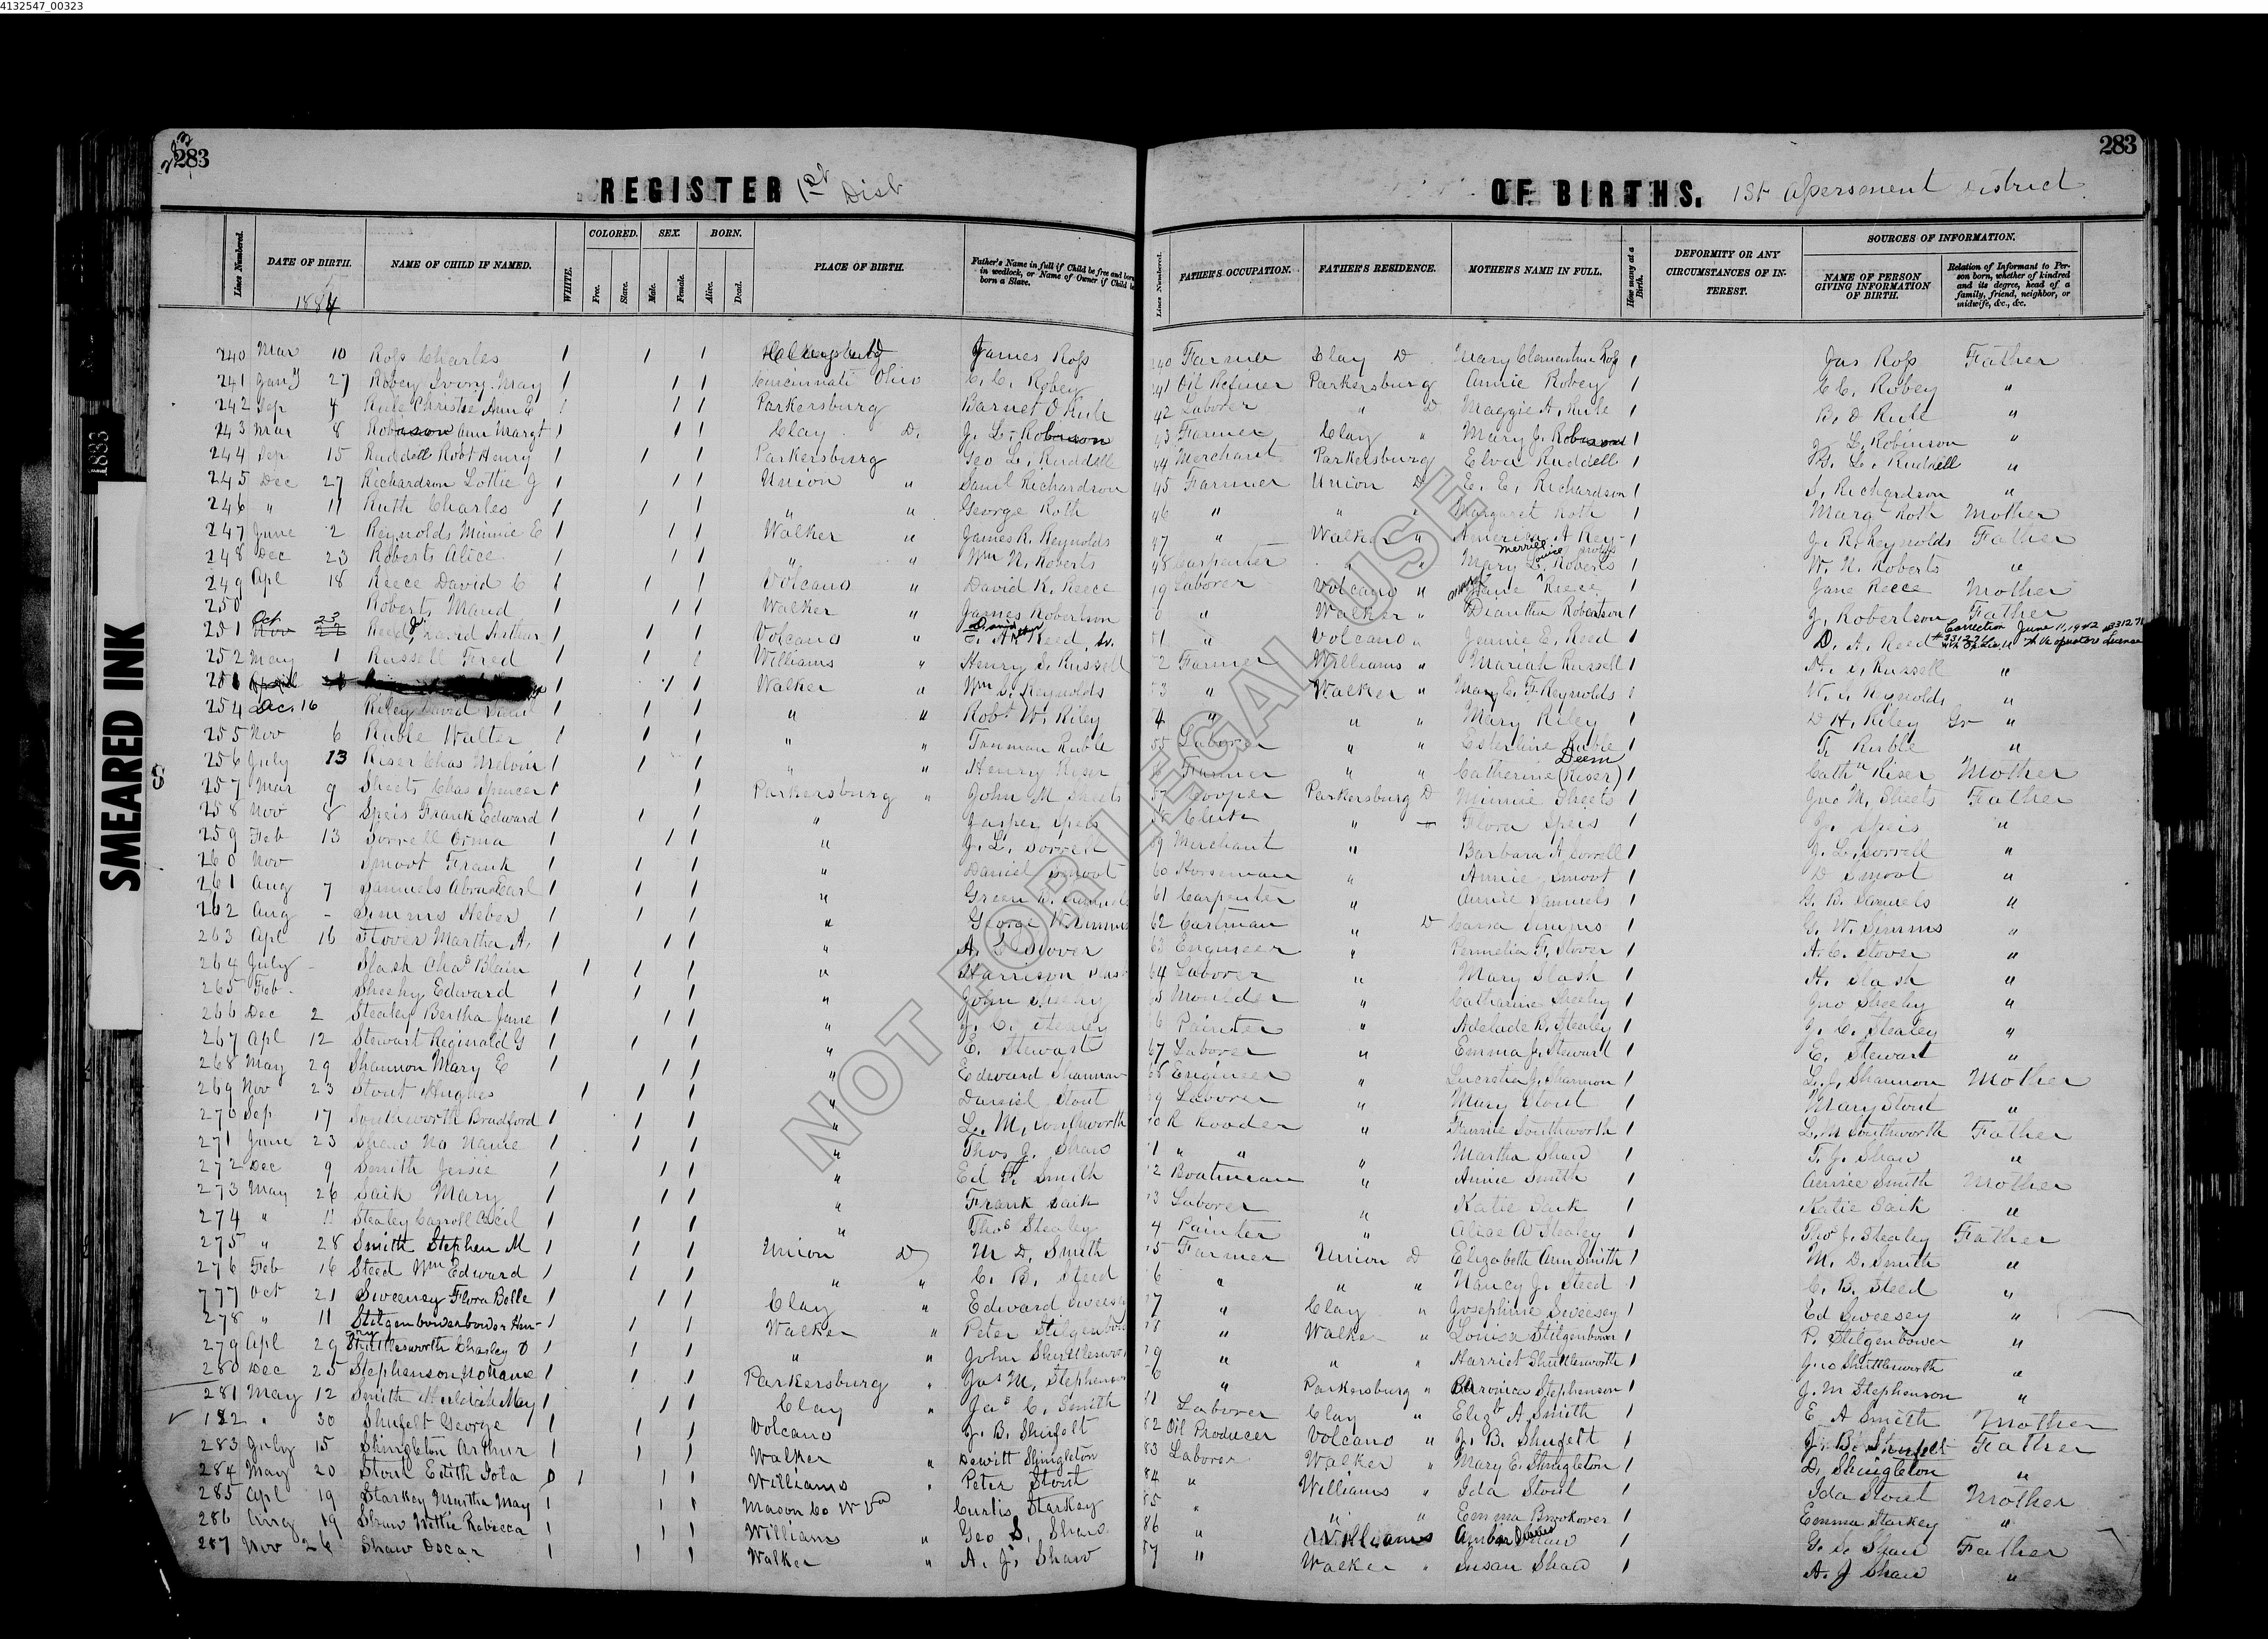 4132547_00323
283
283
REGISTER 1st Dist
OF BIRTHS. 1st district
283
Lines Numbered. DATE OF BIRTH. NAME OF CHILD IF NAMED. WHITE. COLORED. Free. Slave. SEX. Male. Female. BORN. Alive. Dead. PLACE OF BIRTH. Father's Name in full if Child be free and born in wedlock, or Name of Owner if Child be born a Slave.
Lines Numbered. FATHER'S OCCUPATION. FATHER'S RESIDENCE. MOTHER'S NAME IN FULL. How many at a Birth. DEFORMITY OR ANY CIRCUMSTANCES OF INTEREST. SOURCES OF INFORMATION. NAME OF PERSON GIVING INFORMATION OF BIRTH. Relation of Informant to Person born, whether of kindred and its degree, head of a family, friend, neighbor, or midwife, &c., &c.
1884
1883
SMEARED INK
NOT FOR LEGAL USE
240 Mar 10 Ross Charles 1 1 1 James Ross Farmer Clay D Mary Clementine Ross 1 Jas Ross Father
241 Jany 27 Robey Ivory May 1 1 1 Cincinnati Ohio C. C. Robey 41 Oil Refiner Parkersburg Annie Robey 1 Robey "
242 Sep 4 Rule Christie Ann E 1 1 1 Parkersburg Barnet O Rule 42 Laborer " D Maggie A. Rule 1 B. O Rule "
243 Mar 8 Robinson Ann Margt 1 1 1 Clay D. J. L. Robinson 43 Farmer Clay " Mary J. Robinson 1 J. L. Robinson "
244 Sep 15 Ruddell Robt Henry 1 1 1 Parkersburg Geo L. Ruddell 44 Merchant Parkersburg Elva Ruddell 1 L. Ruddell "
245 Dec 27 Richardson Lottie J 1 1 1 Union " Saml Richardson 45 Farmer Union D E. E. Richardson 1 S. Richardson "
246 " 11 Ruth Charles 1 1 1 " " George Roth 46 " " " Margaret Roth 1 Marg Roth Mother
247 June 2 Reynolds Minnie E 1 1 1 Walker " James R. Reynolds 47 " Walker " America A Rey- 1 J. R. Reynolds Father
248 Dec 23 Roberts Alice 1 1 1 " " Wm N. Roberts 48 Carpenter " " Mary Roberts 1 W. N. Roberts "
249 Apl 18 Reece David C 1 1 1 Volcano " David K. Reece Laborer Volcano " Jane Reece 1 Jane Reece Mother
250 Roberts Maud 1 1 1 Walker " James Robertson " Walker " Diantha Robertson 1 J. Robertson Father
251 Oct 23 Reed David Arthur 1 1 1 Volcano " Reed, Sr. " Volcano " Jennie E. Reed 1 D. A. Reed Correction June 11, 1942
252 May 1 Russell Fred 1 1 1 Williams " Henry S. Russell Farmer Williams " Mariah Russell 1 Russell "
1 1 1 Walker " Wm S. Reynolds 53 " Walker " Mary E. F. Reynolds 1 W. S. Reynolds "
254 Dec. 16 Riley David 1 1 1 " " Robt W. Riley " " " Mary Riley 1 D H. Riley Gr "
255 Nov 6 Ruble Walter 1 1 1 " " Ruble 55 Laborer " " Esterline Ruble 1 F. Ruble "
256 July 13 Riser Chas Melvin 1 1 1 " " Henry Riser Farmer " " Catherine (Riser) Deem 1 Riser Mother
257 Mar 9 Sheets Chas Spencer 1 1 Parkersburg " John M Sheets Cooper Parkersburg D Minnie Sheets 1 Jno M. Sheets Father
258 Nov 8 Speis Frank Edward 1 1 1 " Jasper Speis " Flora Speis 1 J. Speis "
259 Feb 13 Sorrell Orma 1 1 1 " J. L. Sorrell 59 Merchant " Barbara A Sorrell 1 J. L. Sorrell "
260 Nov Smoot Frank 1 1 1 " Daniel Smoot 60 Horseman " Annie Smoot 1 D Smoot "
261 Aug 7 Samuels Earl 1 1 1 " Green B. Samuels 61 Carpenter " Annie Samuels 1 G. B. Samuels "
262 Aug - Simms Heber 1 1 1 " George W Simms 62 Cartman " D Simms 1 G. W. Simms "
263 Apl 16 Stover Martha A. 1 1 1 " A. C. Stover 63 Engineer " Permelia F. Stover 1 A. C. Stover "
264 July - Slash Chas Blain 1 1 1 " Harrison Slash 64 Laborer " Mary Slash 1 H. Slash "
265 Feb - Sheehy Edward 1 1 1 " John Sheehy 65 Moulder " Catharine Sheehy 1 Jno Sheehy "
266 Dec 2 Stealey Bertha June 1 1 1 " J. C. Stealey Painter " Adelade R. Stealey 1 J. C. Stealey "
267 Apl 12 Stewart Reginald G 1 1 1 " E. Stewart 67 Laborer " Emma J. Stewart 1 E. Stewart "
268 May 29 Shannon Mary E 1 1 1 " Edward Shannon 68 Engineer " Lucretia J. Shannon 1 L. J. Shannon Mother
269 Nov 23 Stout Hughes 1 1 1 " Daniel Stout Laborer " Mary Stout 1 Mary Stout "
270 Sep 17 Southworth Bradford 1 1 1 " L. M. Southworth " Fannie Southworth 1 L. M Southworth Father
271 June 23 Shaw No Name 1 1 1 " Thos J. Shaw " " " Martha Shaw 1 T. J. Shaw "
272 Dec 9 Smith Jessie 1 1 1 " Ed F. Smith Boatman " Annie Smith 1 Annie Smith Mother
273 May 26 Saik Mary 1 1 1 " Frank Saik Laborer " Katie Saik 1 Katie Saik "
274 " 11 Stealey Carroll Cecil 1 1 1 " Thos Stealey Painter " Alice A Stealey 1 Thos J. Stealey Father
275 " 28 Smith Stephen M 1 1 1 Union D M D. Smith Farmer Union D Elizabeth Ann Smith 1 M. D. Smith "
276 Feb 16 Steed Wm Edward 1 1 1 " " C. B. Steed " " " Nancy J. Steed 1 C. B. Steed "
777 Oct 21 Sweeney Flora Belle 1 1 1 Clay " Edward " Clay " Josephine Sweesey 1 Ed Sweesey "
278 " 11 Stilgenbowerbower Hen-ry 1 1 1 Walker " Peter Stilgenbower " Walker " Louisa Stilgenbower 1 P. Stilgenbower "
279 Apl 29 Shuttlesworth Charley O 1 1 1 " " John Shuttlesworth " " " Harriet Shuttlesworth 1 Jno Shuttlesworth "
280 Dec 25 Stephenson No Name 1 1 1 Parkersburg " Jas M. Stephenson " Parkersburg " Stephenson 1 J. M Stephenson "
281 May 12 Smith May 1 1 1 Clay " Jas C. Smith 81 Laborer Clay " Elizbt A Smith 1 E. A Smith Mother
182 " 30 Shufelt George 1 1 1 Volcano J. B. Shufelt 82 Oil Producer Volcano " J. B. Shufelt 1 J. B. Shufelt Father
283 July 15 Shingleton Arthur 1 1 1 Walker " Dewitt Shingleton 83 Laborer Walker " Mary E. Shingleton 1 D. Shingleton "
284 May 20 Stout Edith Iola 0 1 1 1 Williams " Peter Stout 84 " Williams " Ida Stout 1 Ida Stout Mother
285 Apl 19 Starkey Martha May 1 1 1 Mason Co W Va Curtis Starkey 85 " " " Emma Brookover 1 Emma Starkey "
286 Aug 19 Shaw Rebecca 1 1 1 Williams " Geo S. Shaw 86 " Williams Shaw 1 G. S. Shaw Father
287 Nov 26 Shaw Oscar 1 1 1 Walker " A. J. Shaw 87 " Walker " Susan Shaw 1 A. J Shaw "